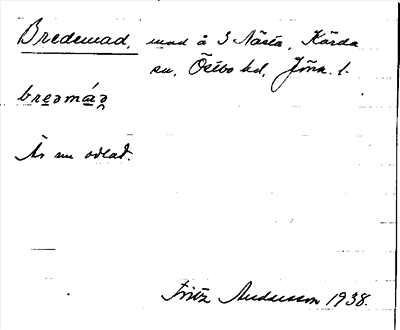 Bredemad, mad å 3 Nästa, Kärda
sn, Östbo hd, Jönk. l.
breǝmáǝ̯
Är nu odlad.
Fritz Andersson 1938.